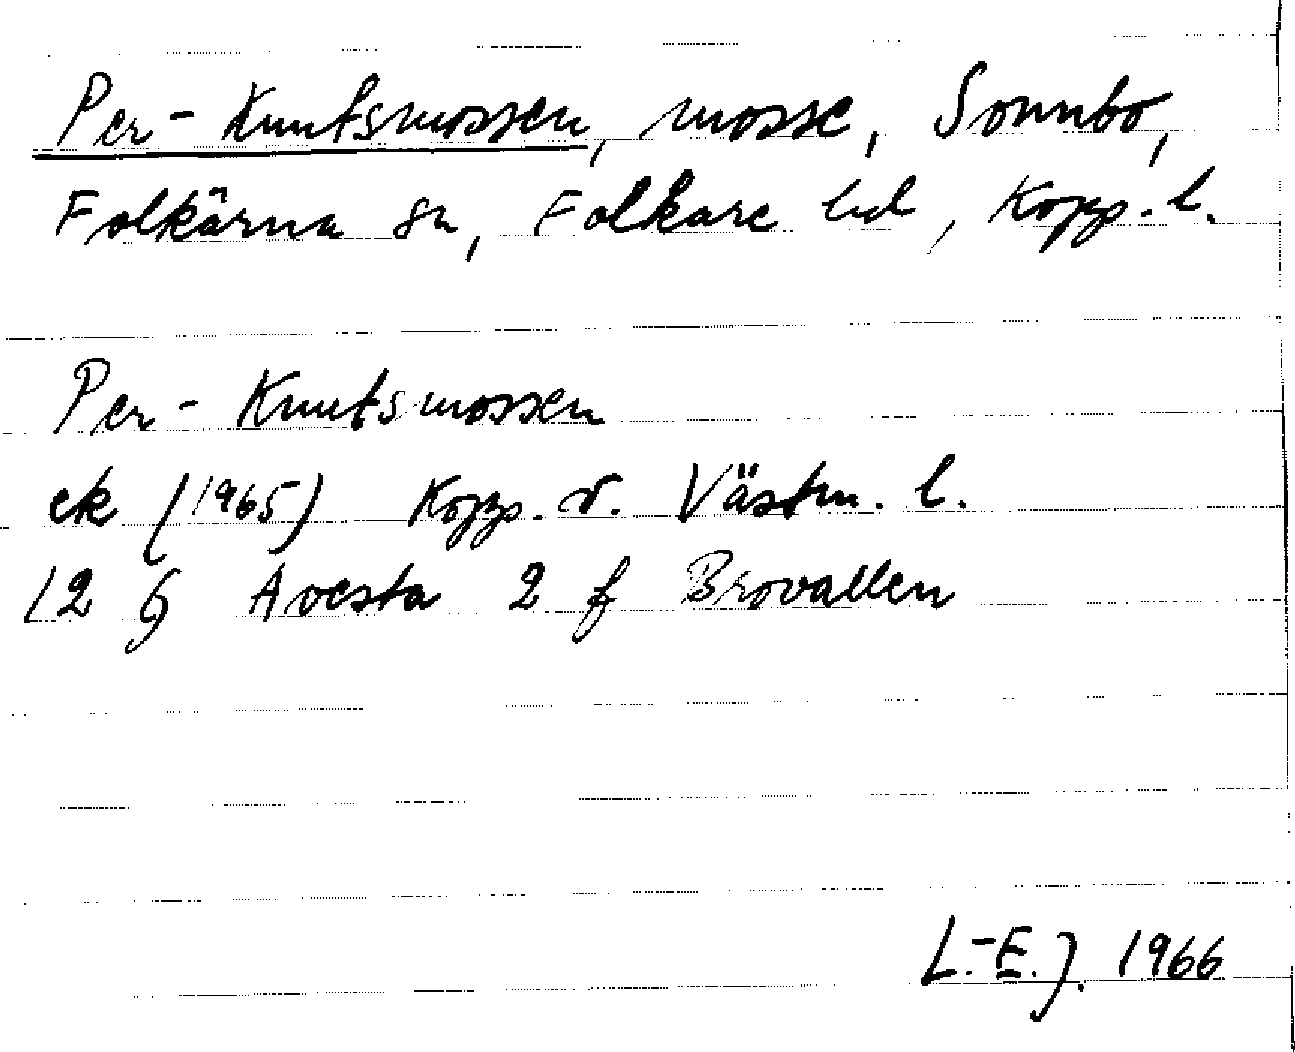 Per-Knutsmossen, mosse, Sonnbo,
Folkärna sn, Folkare hd, Kopp. l.
Per-Knutsmossen
ek (1965) Kopp. o. Västm. l.
12 G Avesta 2 f Brovallen
L.-E. J. 1966